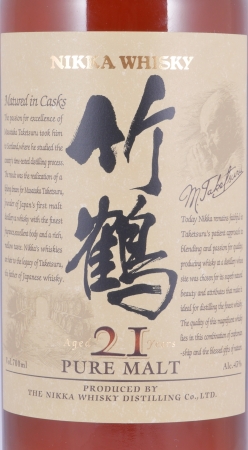 NIKKA WHISKY
Matured in Casks
The passion for excellence of
Masataka Taketsuru took him
to Scotland, where he studied the
country's time-tested distilling process.
The result was the realization of a
living dream for Masataka Taketsuru,
founder of Japan's first malt
distillery: a whisky with the finest
excellent body and a rich,
Nikka's whiskies
to the legacy of Taketsuru,
the father of Japanese whisky.
竹鶴
M. Taketsuru
Today Nikka remains faithful to
Taketsuru's patient approach to
blending and passion for quality,
producing whisky at a distillery whose
site was chosen for its superb natural
beauty and attributes that make it
ideal for distilling the finest whisky.
The quality of this magnificent whisky
lies in this combination of
ship and the blessed gifts of nature.
Aged 21 Years
PURE MALT
Vol.700ml
Alc.43%
PRODUCED BY
THE NIKKA WHISKY DISTILLING Co., LTD.